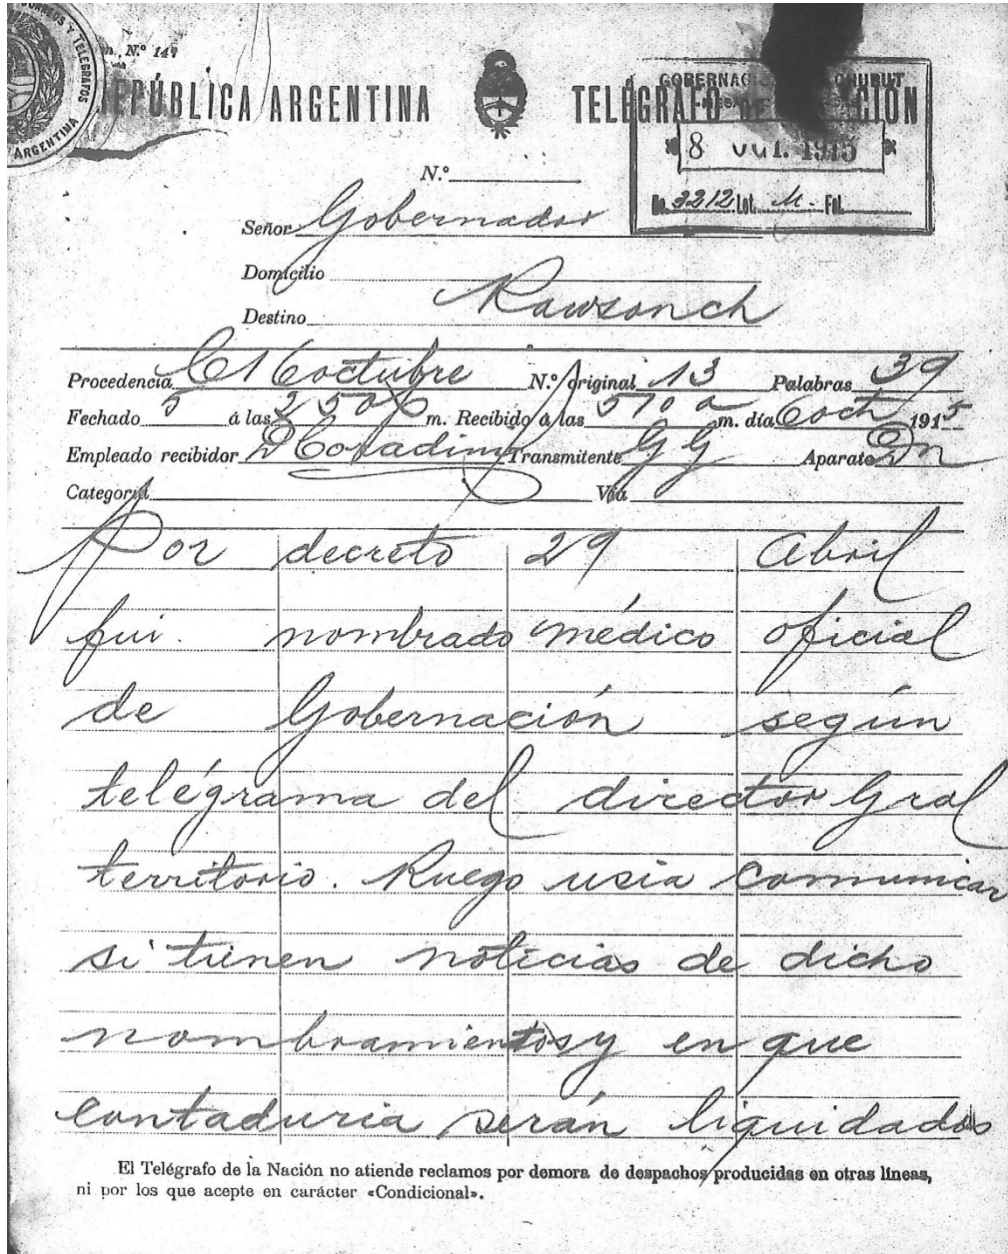 CORREOS Y TELEGRAFOS
ARGENTINA
N.º 147
REPÚBLICA ARGENTINA
TELÉGRAFO DE LA NACIÓN
GOBERNACIÓN CHUBUT
8 OCT. 1915
No. 3212 Let. M. Fol.
N.º
Señor Gobernador
Domicilio
Destino Rawsonch
Procedencia octubre N.º original 13 Palabras 39
Fechado 5 á las 250 m. Recibido á las 510 a m. día 6 oct 1915
Empleado recibidor Transmitente GG Aparato Dn
Categoría Vía
Por decreto 29 Abril
fui nombrado médico oficial
de Gobernación según
telégrama del director Gral
territorio. Ruego usia comunicar
si tienen noticias de dicho
nombramiento y en que
contaduria serán liquidados
El Telégrafo de la Nación no atiende reclamos por demora de despachos producidas en otras líneas,
ni por los que acepte en carácter «Condicional».